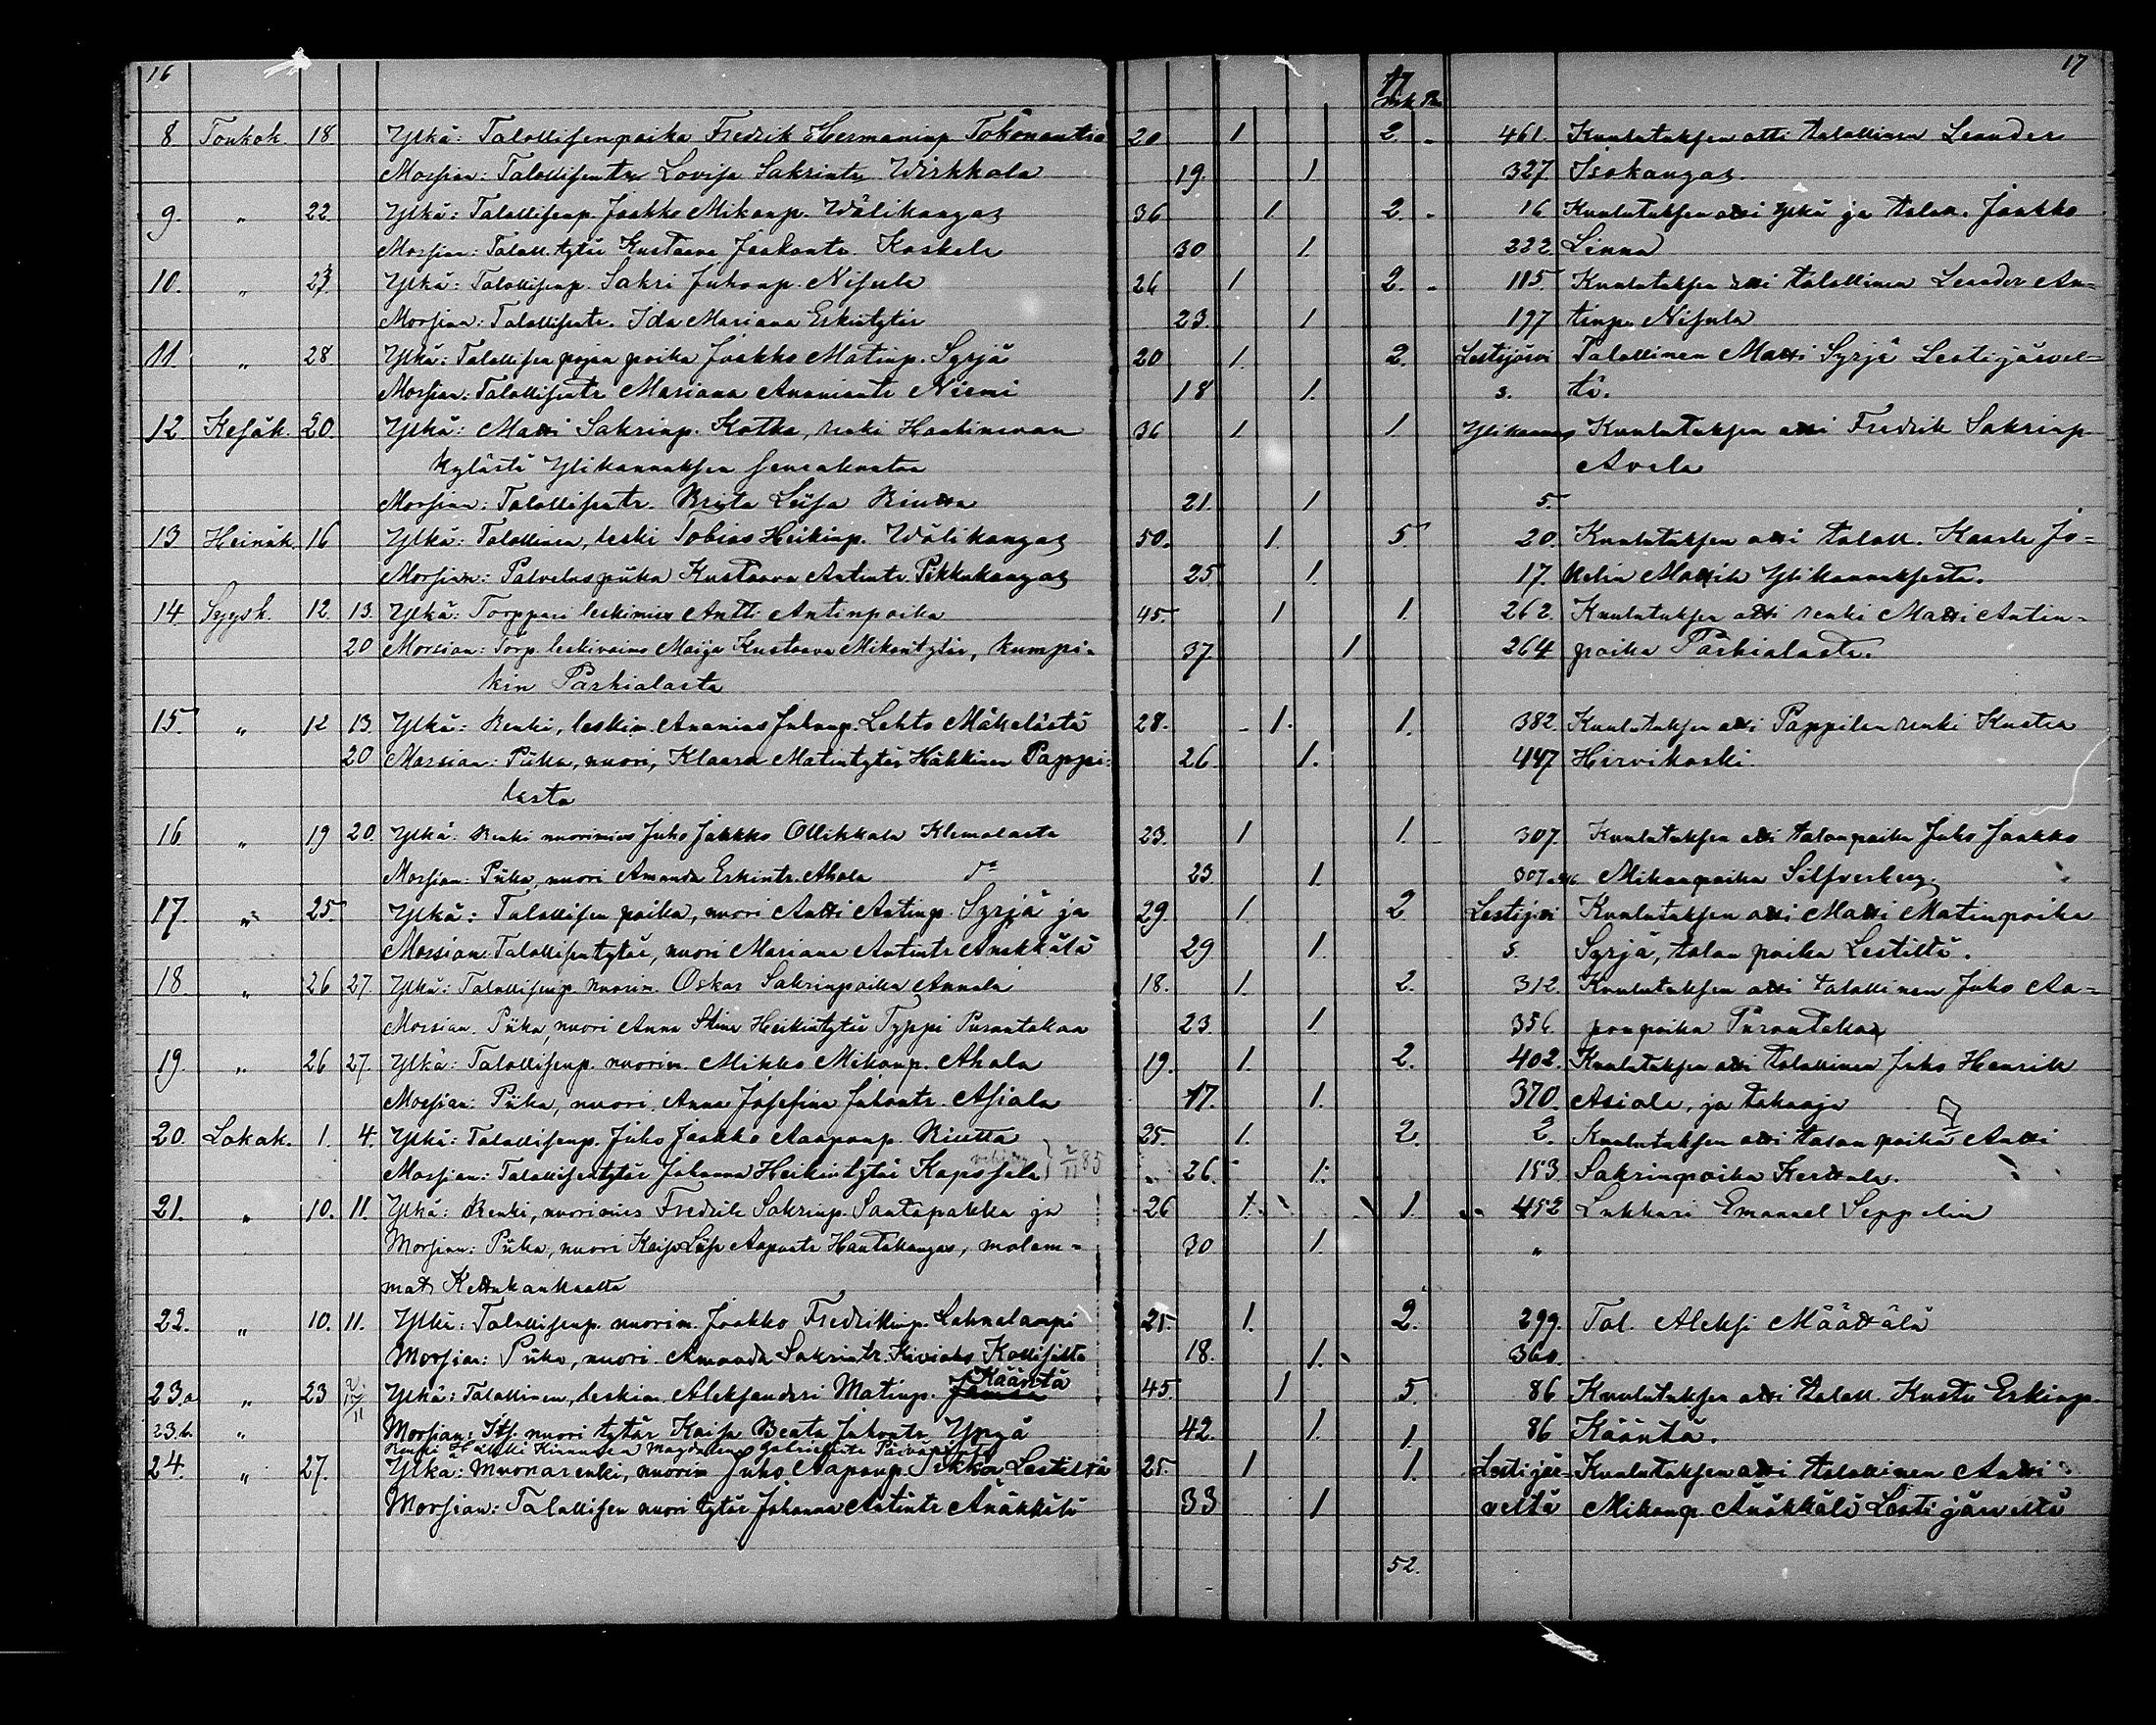 16
17
17
8 Toukok. 18 Ylkä: Talollisenpoika Fredrik Hermaninp. 20 1 2. 461. Kuulutuksen otti talollinen Leander
Morsian: Talollisentr. Lovisa Sakrintr. Wirkkala 19. 1. 327. Isokangas.
9. " 22 Ylkä: Talollisenp. Jaakko Mikonp. Wälikangas 36 1. 2. 16 Kuulutuksen otti Ylkä ja talon. Jaakko
Morsian: Taloll. tytär Kustaava Jaakontr. Koskela 30 1. 222. Linna
10. " 23. Ylkä: Talollisenp. Sakri Juhonp. Nisula 26 1 2. 115. Kuulutuksen otti talollinen Leander An=
Morsian: Talollisentr. Ida Mariana Erkintytär 23. 1 197 tinp. Nisula
11. " 28. Ylkä: Talollisen pojan poika Jaakko Matinp. Syrjä 20 1. 2. Lestijärvi Talollinen Matti Syrjä Lestijärvel=
Morsian: Talollisentr. Mariana Ananiantr. Niemi 18 1. 3. tä.
12 Kesäk. 20. Ylkä: Matti Sakrinp. Kotka, renki 36 1. 1. Ylikannus Kuulutuksen otti Fredrik Sakrinp.
kylästä Ylikannuksen seurakuntaa Avela
Morsian: Talollisentr. Brita Liisa 21. 1 5.
13 Heinäk. 16 Ylkä: Talollinen, leski Tobias Heikinp. Wälikangas 50. 1. 5. 20. Kuulutuksen otti taloll. Kaarle Jo=
Morsian: Palveluspiika Kustaava Antintr. Pikkukangas 25 1. 17. kelin Ylikannuksesta.
14 Syysk. 12. 13. Ylkä: Torppari leskimies Antti Antinpoika 45. 1 1. 262. Kuulutuksen otti renki Matti Antin=
20 Morsian: Torp. leskivaimo Maija Kustaava Mikontytär, kumpi= 37. 1 264 poika Parhialasta.
kin Parhialasta
15. " 12 13. Ylkä: Renki, leskim. Ananias Juhonp. Lehto Mäkelästä 28. 1. 1. 382 Kuulutuksen otti Pappilan renki Kustaa
20 Morsian: Piika, nuori, Klaara Matintytär Häkkinen Pappi= 26. 1. 447 Hirvikoski.
lasta
16. " 19 20. Ylkä: Renki nuorimies Juho Jaakko Ollikkala Klemolasta 23. 1 1. 307. Kuulutuksen otti talonpoika Juho Jaakko
Morsian: Piika, nuori Amanda Erkintr. Ahola d:o 23. 1. 307 Mikonpoika Silfverberg.
17. " 25 Ylkä: Talollisen poika, nuori Antti Antinp. Syrjä ja 29. 1. 2 Kuulutuksen otti Matti Matinpoika
Morsian: Talollisentytär, nuori Mariana Antintr. Änäkkälä 29 1. 5. Syrjä, talon poika Lestiltä.
18. " 26 27. Ylkä: Talollisenp. nuorim. Oskar Sakrinpoika Annala 18. 1. 2. 312. Kuulutuksen otti talollinen Juho Aa=
Morsian. Piika, nuori Anna Stiina Heikintytär Typpi Purontakaa 23. 1. 356. ponpoika Purontakaa
19. " 26 27. Ylkä: Talollisenp. nuorim. Mikko Mikonp. Ahola 19. 1. 2. 402. Kuulutuksen otti talollinen Juho Henrik
Morsian: Piika, nuori. Anna Josefina Juhontr. Asiala 17. 1. 370. Asiala, ja takaaja
20. Lokak. 1. 4. Ylkä: Talollisenp. Juho Jaakko Aaponp. 25. 1. 2. 2. Kuulutuksen otti talonpoika Antti
Morsian: Talollisentytär Johanna Heikintytär Kapsala 2/11 85 26. 1. 153 Sakrinpoika Kerttula.
21. " 10. 11. Ylkä: Renki, nuorimies Fredrik Sakrinp. Santapakka ja 26 1. 1. 452 Lukkari Emanuel Seppelin
Morsian: Piika, nuori Kaisa Liisa Aapontr. Hautakangas, molem= 30 1. "
mat Kettukankaalta
22. " 10. 11. Ylkä: Talollisenp. nuorim. Jaakko Fredrikinp. Lahnalampi 25. 1. 2. 299. Tal. Aleksi Määttälä
Morsian: Piika, nuori. Amanda Sakrintr. Kiviaho 18. 1. 360.
23.a " 23 Ylkä: Talollinen, leskim. Aleksanderi Matinp. Kääntä 45. 1 5. 86 Kuulutuksen otti taloll. Kustu Erkinp.
23.b. " Morsian: Its. nuori tytär Kaisa Beata Juhontr. Yppä 42. 1. 1. 86 Kääntä.
24. " 27. Ylkä: Muonarenki, nuorim Juho Aaponp. Lestiltä 25. 1 1. Lestijär= Kuulutuksen otti talollinen Antti
Morsian: Talollisen nuori tytär Johanna Antintr. Änäkkälä 33 1 veltä Mikonp. Änäkkälä Lestijärveltä
52.